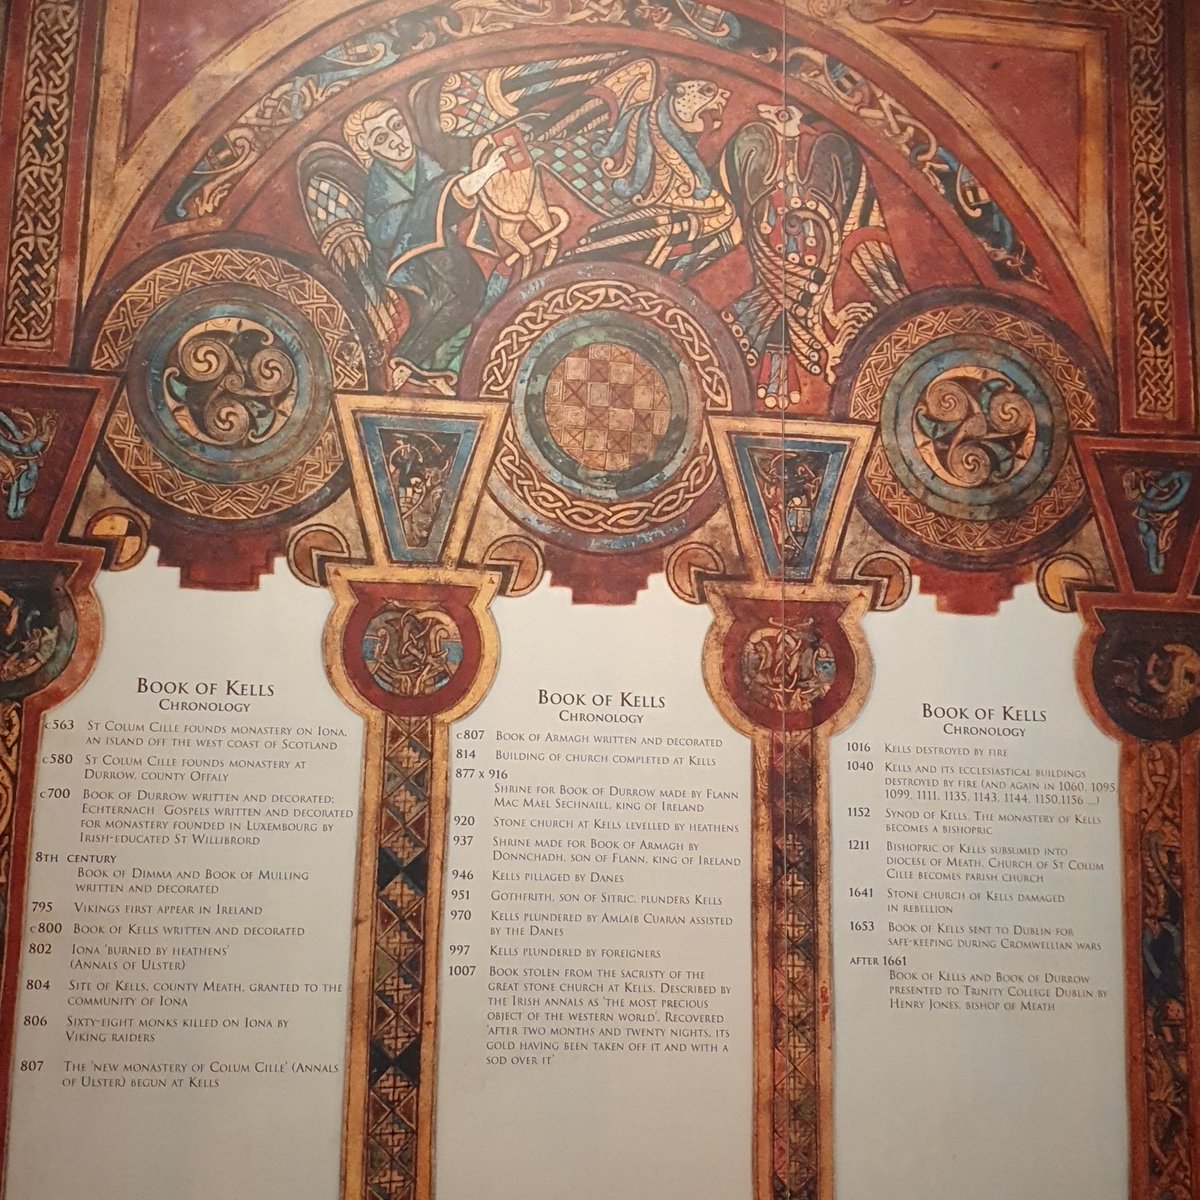 Book of Kells
Chronology
c563 St Colum Cille founds monastery on Iona,
an island off the west coast of Scotland
c580 St Colum Cille founds monastery at
Durrow, county Offaly
c700 Book of Durrow written and decorated;
Echternach Gospels written and decorated
for monastery founded in Luxembourg by
Irish-educated St Willibrord
8th century
Book of Dimma and Book of Mulling
written and decorated
795 Vikings first appear in Ireland
c800 Book of Kells written and decorated
802 Iona 'burned by heathens'
(Annals of Ulster)
804 Site of Kells, county Meath, granted to the
community of Iona
806 Sixty-eight monks killed on Iona by
Viking raiders
807 The 'new monastery of Colum Cille' (Annals
of Ulster) begun at Kells
Book of Kells
Chronology
c807 Book of Armagh written and decorated
814 Building of church completed at Kells
877 x 916
Shrine for Book of Durrow made by Flann
Mac Mael Sechnaill, king of Ireland
920 Stone church at Kells levelled by heathens
937 Shrine made for Book of Armagh by
Donnchadh, son of Flann, king of Ireland
946 Kells pillaged by Danes
951 Gothfrith, son of Sitric, plunders Kells
970 Kells plundered by Amlaíb Cuarán assisted
by the Danes
997 Kells plundered by foreigners
1007 Book stolen from the sacristy of the
great stone church at Kells. Described by
the Irish annals as 'the most precious
object of the western world'. Recovered
'after two months and twenty nights, its
gold having been taken off it and with a
sod over it'
Book of Kells
Chronology
1016 Kells destroyed by fire
1040 Kells and its ecclesiastical buildings
destroyed by fire (and again in 1060, 1095,
1099, 1111, 1135, 1143, 1144, 1150,1156 ...)
1152 Synod of Kells. The monastery of Kells
becomes a bishopric
1211 Bishopric of Kells subsumed into
diocese of Meath. Church of St Colum
Cille becomes parish church
1641 Stone church of Kells damaged
in rebellion
1653 Book of Kells sent to Dublin for
safe-keeping during Cromwellian wars
after 1661
Book of Kells and Book of Durrow
presented to Trinity College Dublin by
Henry Jones, bishop of Meath